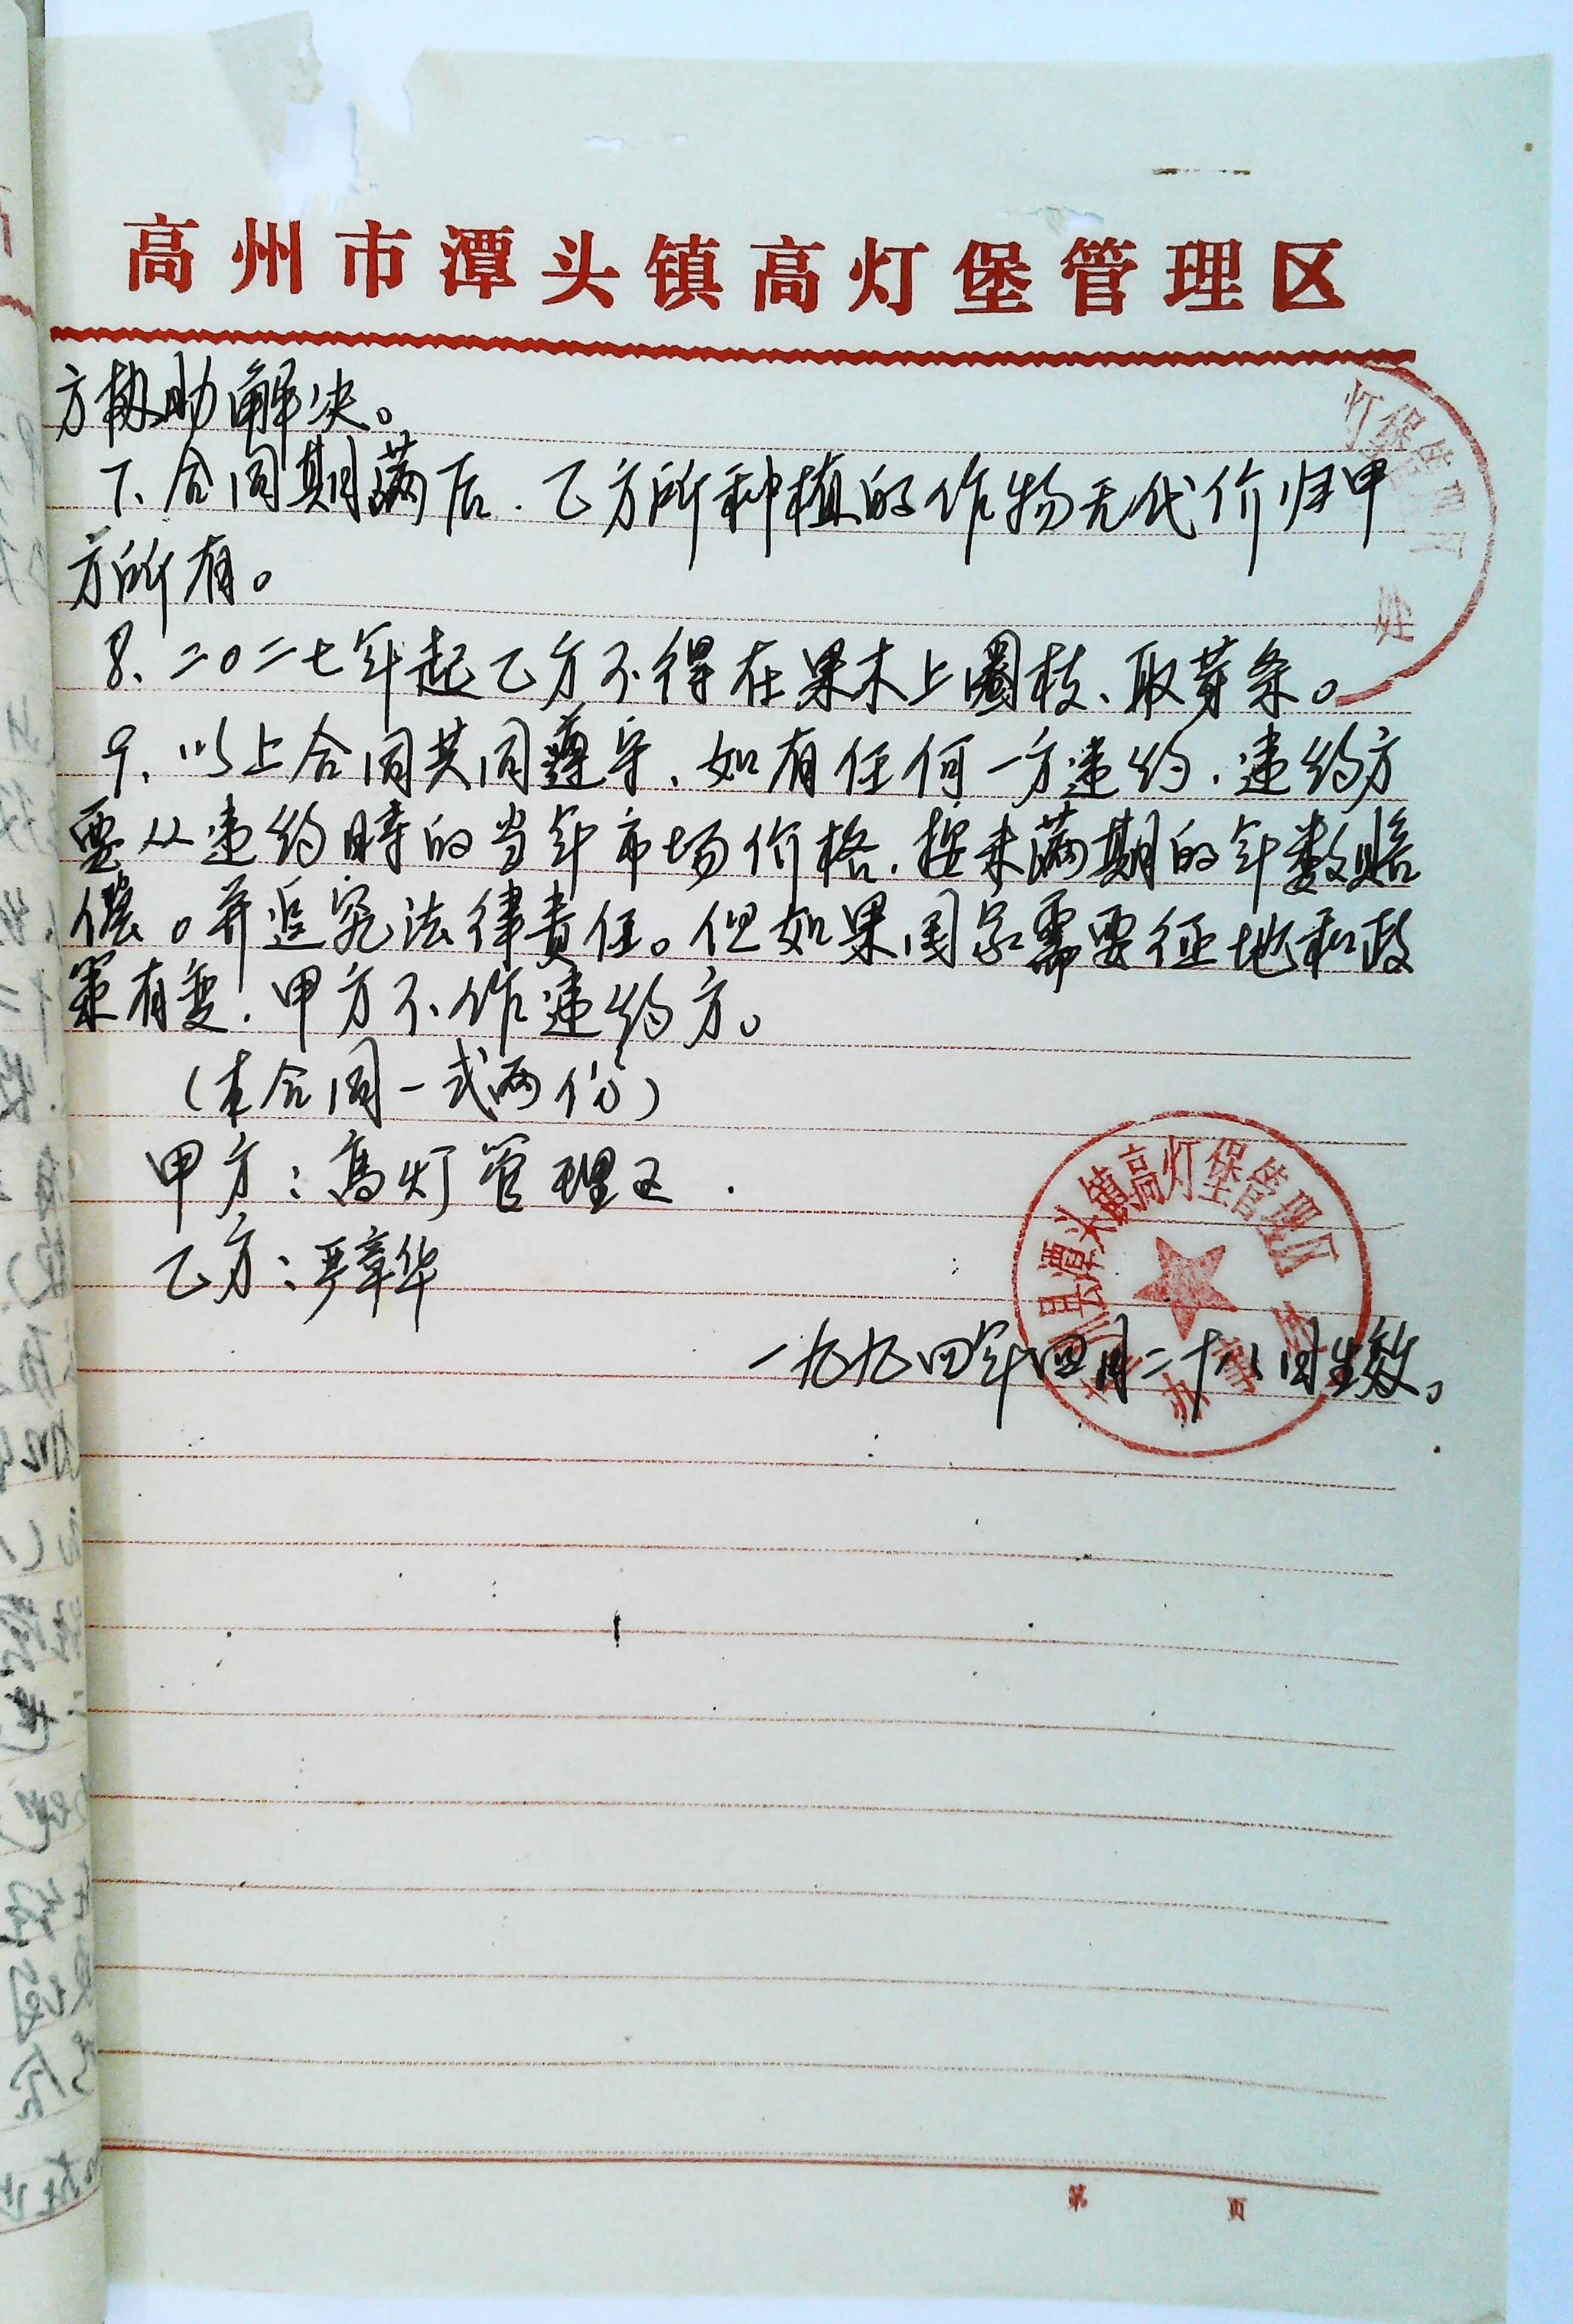 高州市潭头镇高灯堡管理区
方协助解决。
7、合同期满后.乙方所种植的作物无代价归甲
方所有。
8、二〇二七年起乙方不得在果木上圈枝、取芽条。
9、以上合同共同遵守、如有任何一方违约.违约方
要从违约时的当年市场价格.按未满期的年数赔
偿。并追究法律责任。但如果国家需要征地和政
策有变.甲方不作违约方。
(本合同一式两份)
甲方:高灯管理区.
乙方:严章华
一九九四年四月二十八日生效。
灯堡管理区
处
县潭头镇高灯堡管理区
办事
第 页